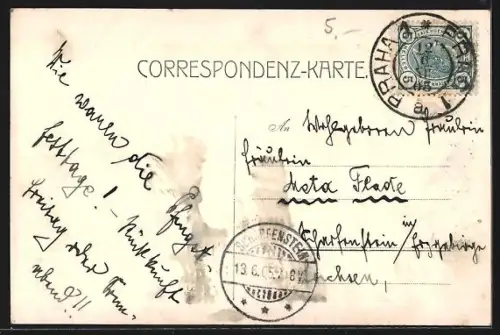 5,-
CORRESPONDENZ-KARTE.
PRAHA 1 * PRAG 1
12
6
05
a
Wie waren die Pfingst-
festtage! - Rückkunft
Freitag oder Sonn-
abend?!
An Wohlgeboren Fräulein
Fräulein
Meta Flade
Scharfenstein im Erzgebirge
Sachsen,
SCHARFENSTEIN
13.6.05.